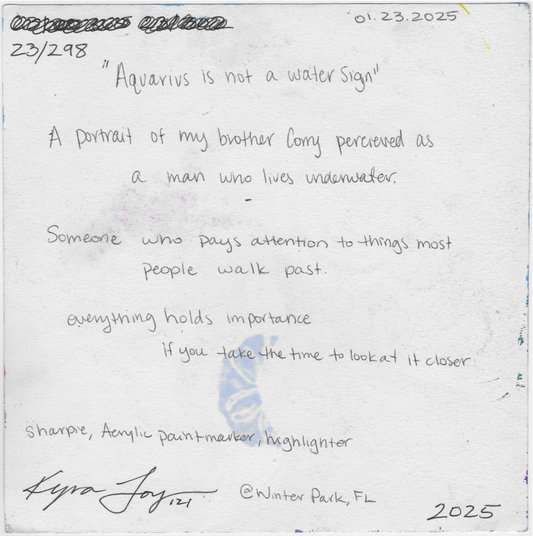 01.23.2025
23/298
"Aquarius is not a water sign"
A portrait of my brother Corry percieved as
a man who lives underwater.
-
Someone who pays attention to things most
people walk past.
everything holds importance
if you take the time to look at it closer
Sharpie, Acrylic paintmarker, highlighter
Kyra Joy 121
@Winter Park, FL
2025